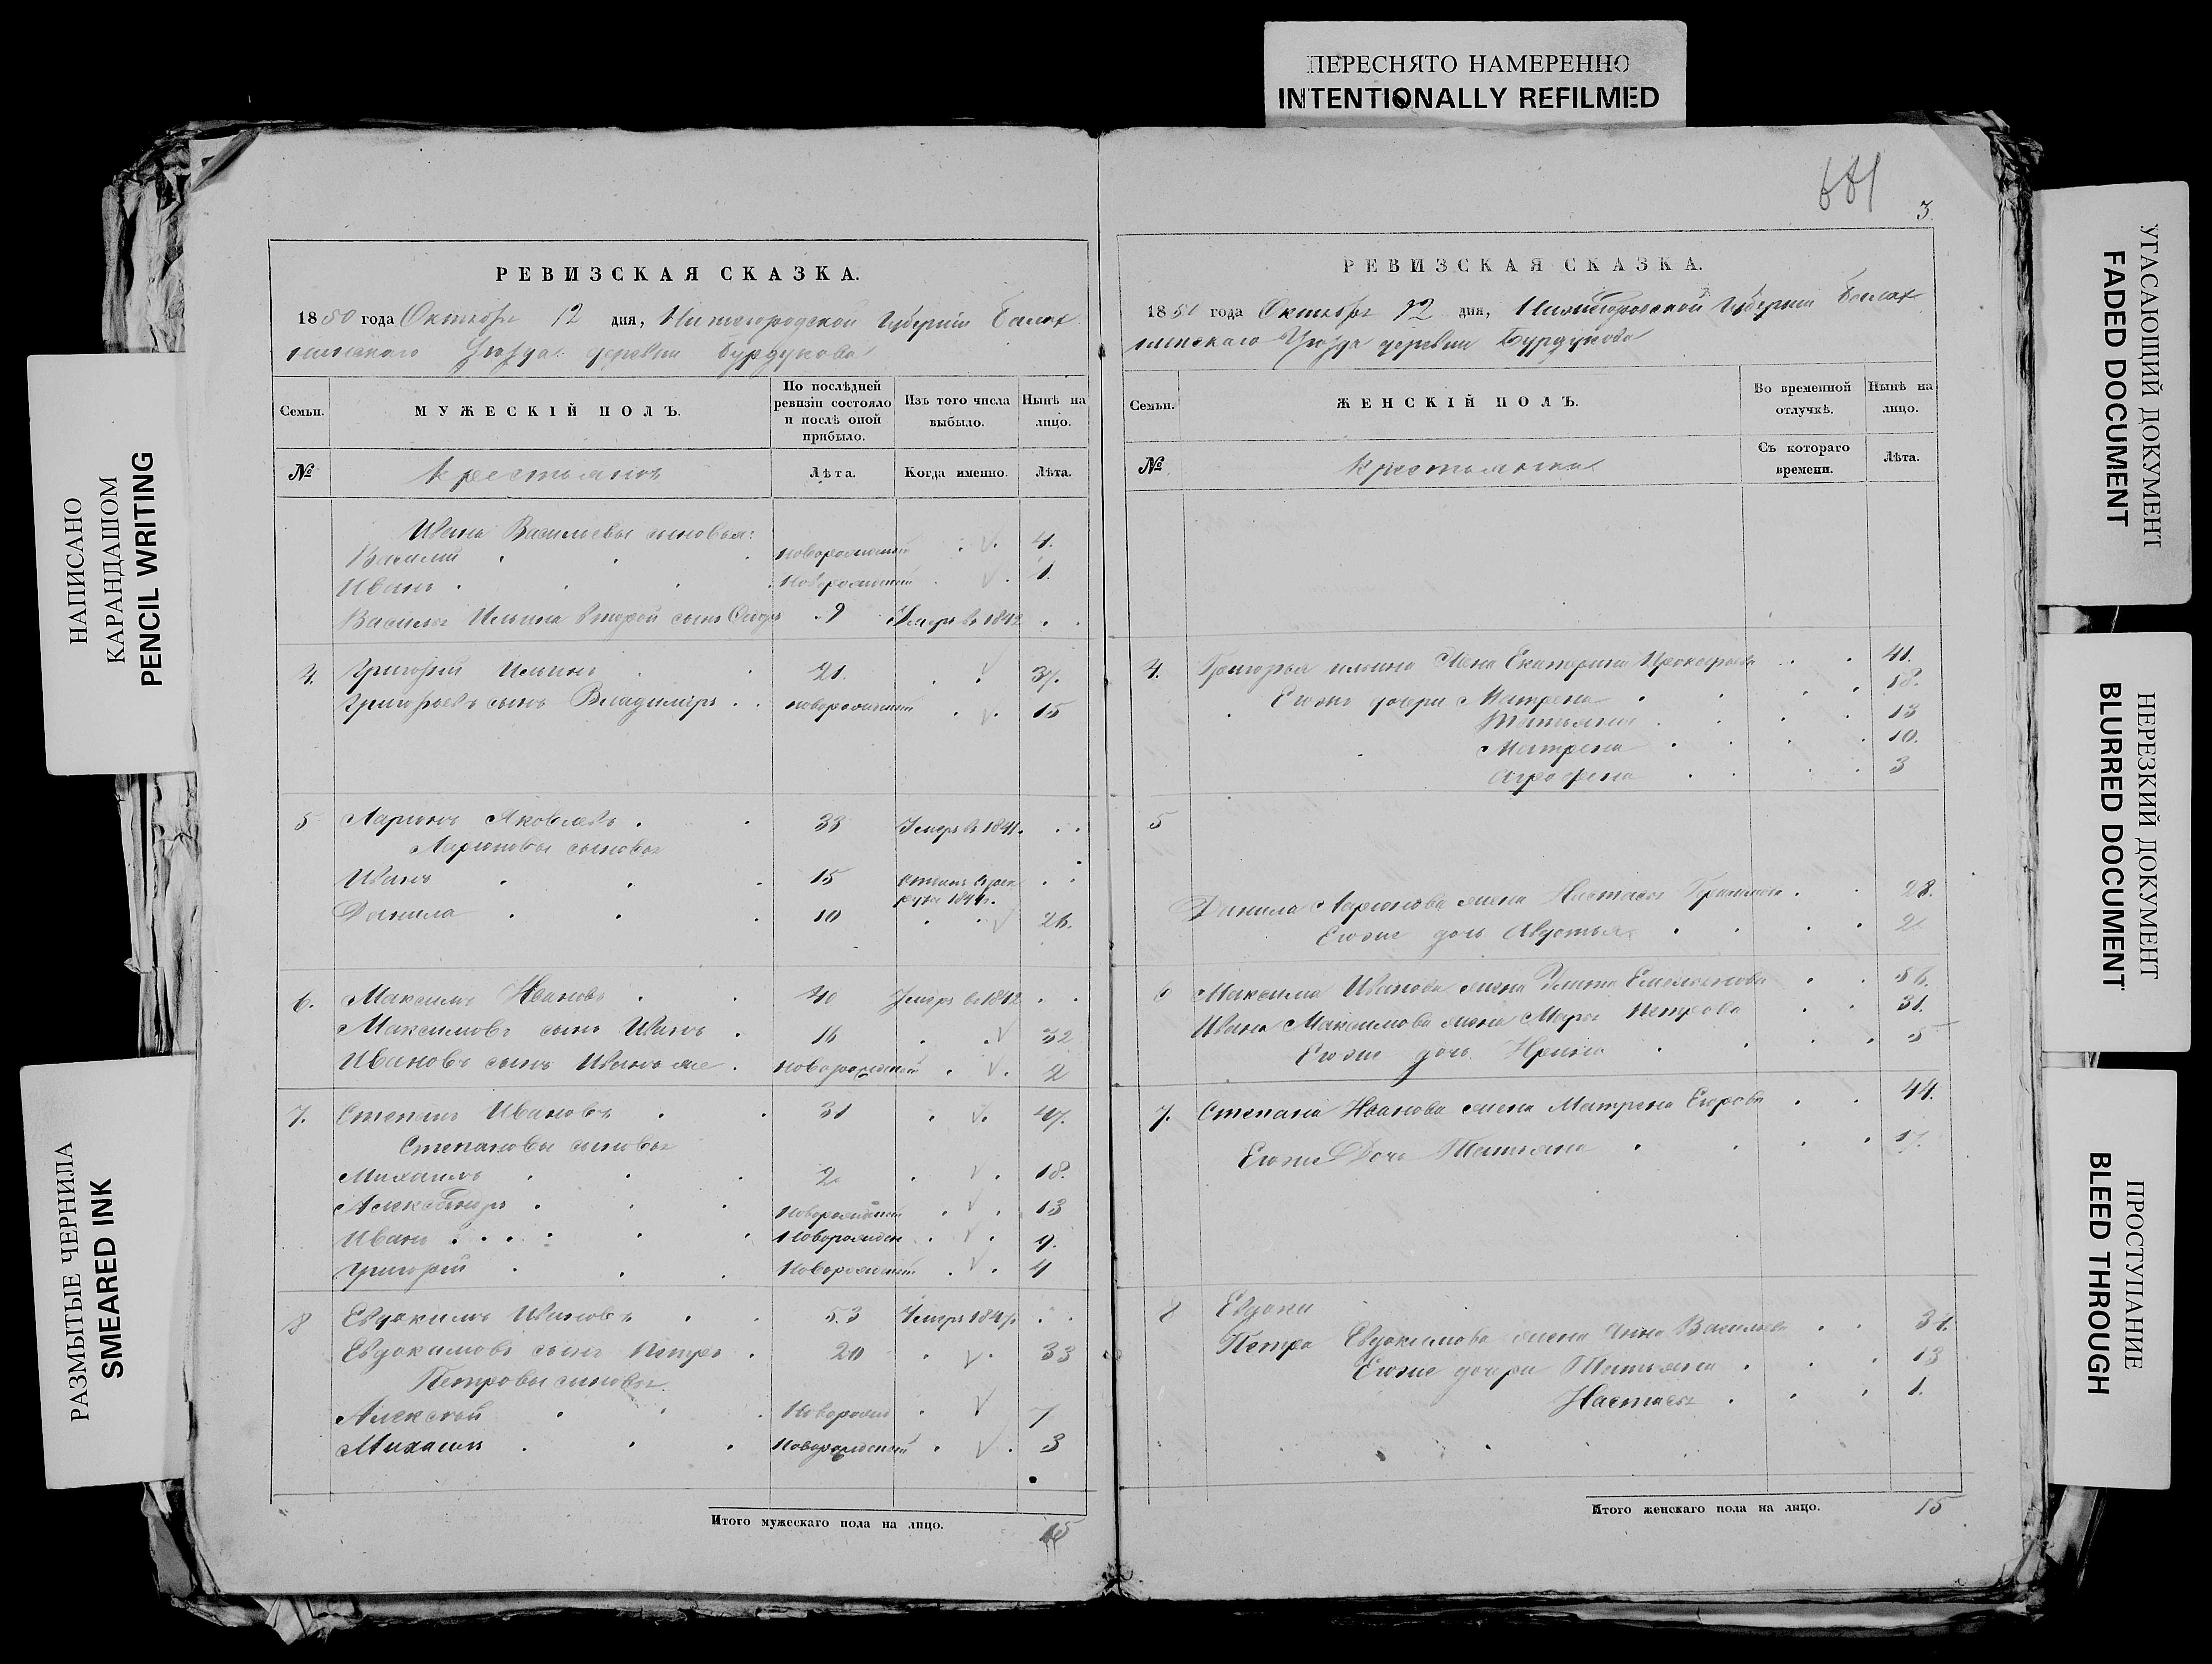 ПЕРЕСНЯТО НАМЕРЕННО
INTENTIONALLY REFILMED
НАПИСАНО
КАРАНДАШОМ
PENCIL WRITING
РАЗМЫТЫЕ ЧЕРНИЛА
SMEARED INK
РЕВИЗСКАЯ СКАЗКА.
1850 года Октября 12 дня, Нижегородской Губернiи Балах
нинскаго Уѣзда деревни Бурдукова
Семьи.
МУЖЕСКІЙ ПОЛЪ.
По послѣдней ревизіи состояло и послѣ оной прибыло.
Изъ того числа выбыло.
Нынѣ на лицо.
№
Лѣта.
Когда именно.
Лѣта.
Ивана Васильевы сыновья:
Василій новорожденный 4.
Иванъ новорожденный 1.
Василья Ильина второй сынъ 9 Умеръ въ 1842
4. Григорій Ильинъ 21. 37.
Григорьевъ сынъ Владимiръ новорожденный 15
5 Ларіонъ Яковлевъ 33 Умеръ въ 1841.
Ларіоновы сыновья
Иванъ 15
Данила 10 26.
6. Максимъ Ивановъ 40 Умеръ въ 1842
Максимовъ сынъ Иванъ 16 32
Ивановъ сынъ Иванъ же новорожденный 2
7. Степанъ Ивановъ 31 47.
Степановы сыновья
Михаилъ 2 18.
Александръ новорожденный 13
Иванъ новорожден 9.
Григорій новорожденный 4
8 Евдокимъ Ивановъ 53 Умеръ
Евдокимовъ сынъ Петръ 20 33
Петровы сыновья
Алексѣй новорожд 7
Михаилъ новорожденный 3
Итого мужескаго пола на лицо. 15
681
3.
РЕВИЗСКАЯ СКАЗКА.
1850 года Октября 12 дня, Нижегородской Губерніи Балах
нинскаго Уѣзда деревни Бурдукова
Семьи.
ЖЕНСКІЙ ПОЛЪ.
Во временной отлучкѣ.
Нынѣ на лицо.
№
Съ котораго времени.
Лѣта.
4. Григорья Ильина жена Екатерина Прокофьева 41.
Ево дочери Матрена 18.
Татьяна 13
Матрена 10.
Аграфена 3
5
Данила Ларіонова жена Настасья 28.
Евоже дочь 2
6 Максима Иванова жена Емельянова 56.
Ивана Максимова жена Марья Петрова 31.
Евоже дочь Ирина 5
7. Степана Иванова жена Матрена Егорова 44.
Евоже Дочь Татьяна 17.
8 Евдоки
Петра Евдокимова жена Анна Васильева
Евоже дочери Татьяна 13
Настасья 1.
Итого женскаго пола на лицо. 15
УГАСАЮЩИЙ ДОКУМЕНТ
FADED DOCUMENT
НЕРЕЗКИЙ ДОКУМЕНТ
BLURRED DOCUMENT
ПРОСТУПАНИЕ
BLEED THROUGH